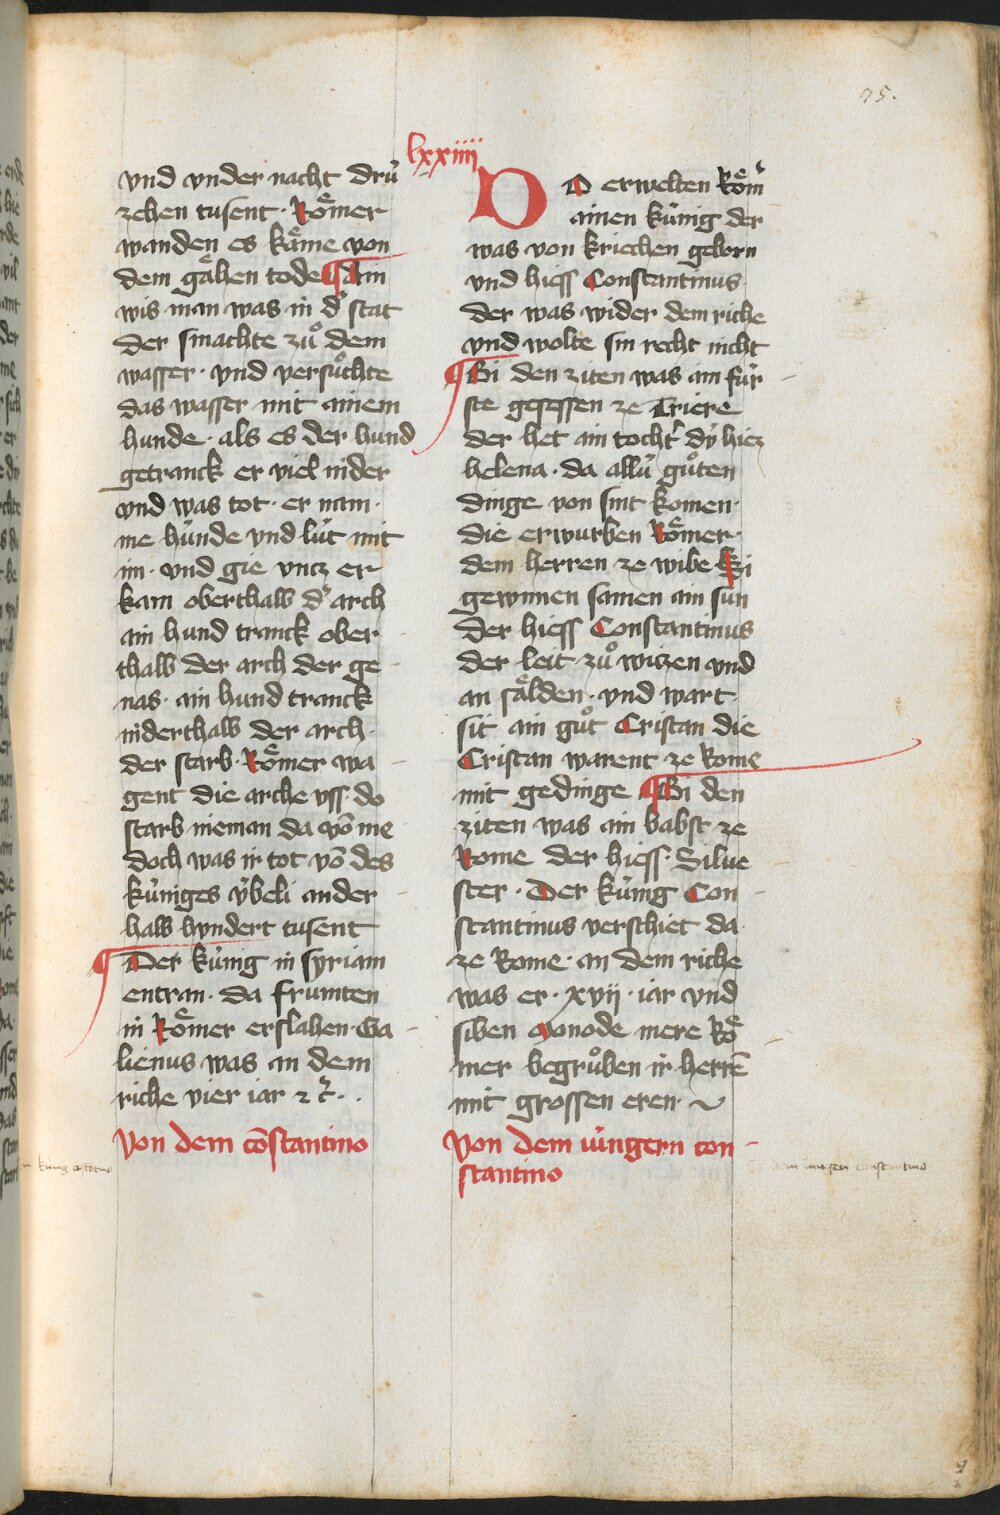 75.
vnd vnder nacht drü
zehen tusent · Römer
wanden es käme von
dem gähen tode ¶ Ain
wis man was in d' stat
der smachte zuͦ dem
wasser · vnd versuͦchte
das wasser mit ainem
hunde · als es der hund
getranck er viel nider
vnd was tot · er nam ·
me hünde vnd lüt mit
im · vnd gie vncz er
kam oberthalb d' arch
ain hund tranck ober
thalb der arch der ge
nas · ain hund tranck
niderthalb der arch ·
der starb · Römer wa
gent die arche vff · do
starb nieman da võ me
doch was ir tot võ des
küniges v̈beli ander
halb hvndert tusent
¶ Der künig in syriam
entran · da frumten
in Römer erslahen · Ga
lienus was an dem
riche vier iar ⁊ c̃ ·
Von dem cõstantino
lxxiiii
DO erwelten Röm'
ainen künig der
was von kriechen geborn
vnd hiess Constantinus ·
der was wider dem riche
vnd wolte sin recht nicht
¶ Bi den ziten was ain für
ste gesessen ze Triere
der het ain tocht' dÿ hiez
helena · da allü guͦten
dinge von sint komen ·
die erwurben Römer ·
dem herren ze wibe Si
gewunnen samen ain sun
der hiess Constantinus
der leit zuͦ wizen vnd
an sälden · vnd wart
sit ain guͦt Cristan die
Cristan warent ze Rome
mit gedinge ¶ Bi den
ziten was ain babst ze
Rome der hiess · Silue
ster · Der künig Con
stantinus verschiet da
ze Rome · an dem riche
was er · xvij · iar vnd
siben Monode mere Rö
mer begruͦben ir herrẽ
mit grossen eren ·
Von dem iüngern con
stantino